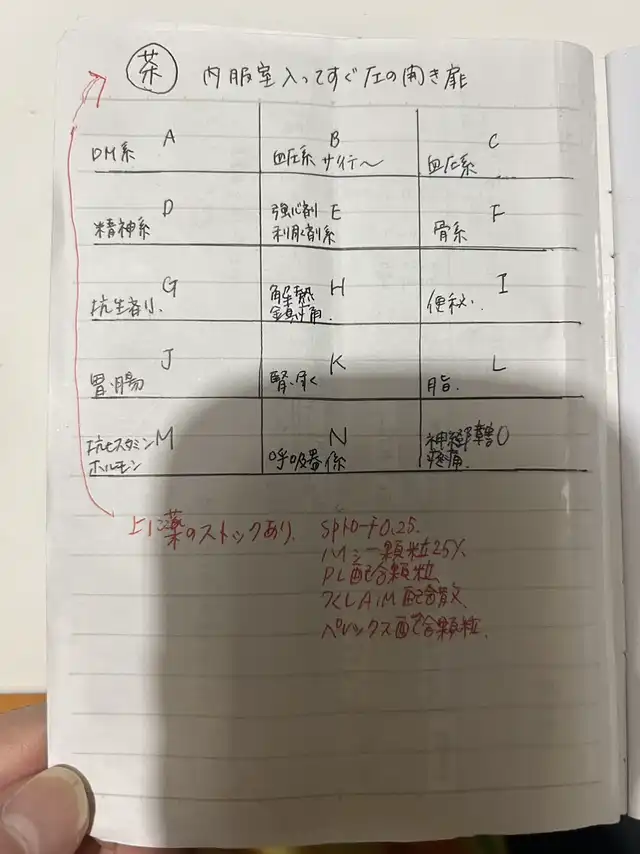 茶 内服室入ってすぐ左の開き扉
A DM系
B 血圧系 サイテ〜
C 血圧系
D 精神系
E 強心剤
利尿剤系
F 骨系
G 抗生剤
H 解熱
鎮痛
I 便秘
J 胃腸
K 腎・尿
L 脂
M 抗ヒスタミン
ホルモン
N 呼吸器係
O 神経障害
疼痛
上に薬のストックあり 0.25
ハイシー顆粒25%
PL配合顆粒
つくしAM配合散
ペレックス配合顆粒